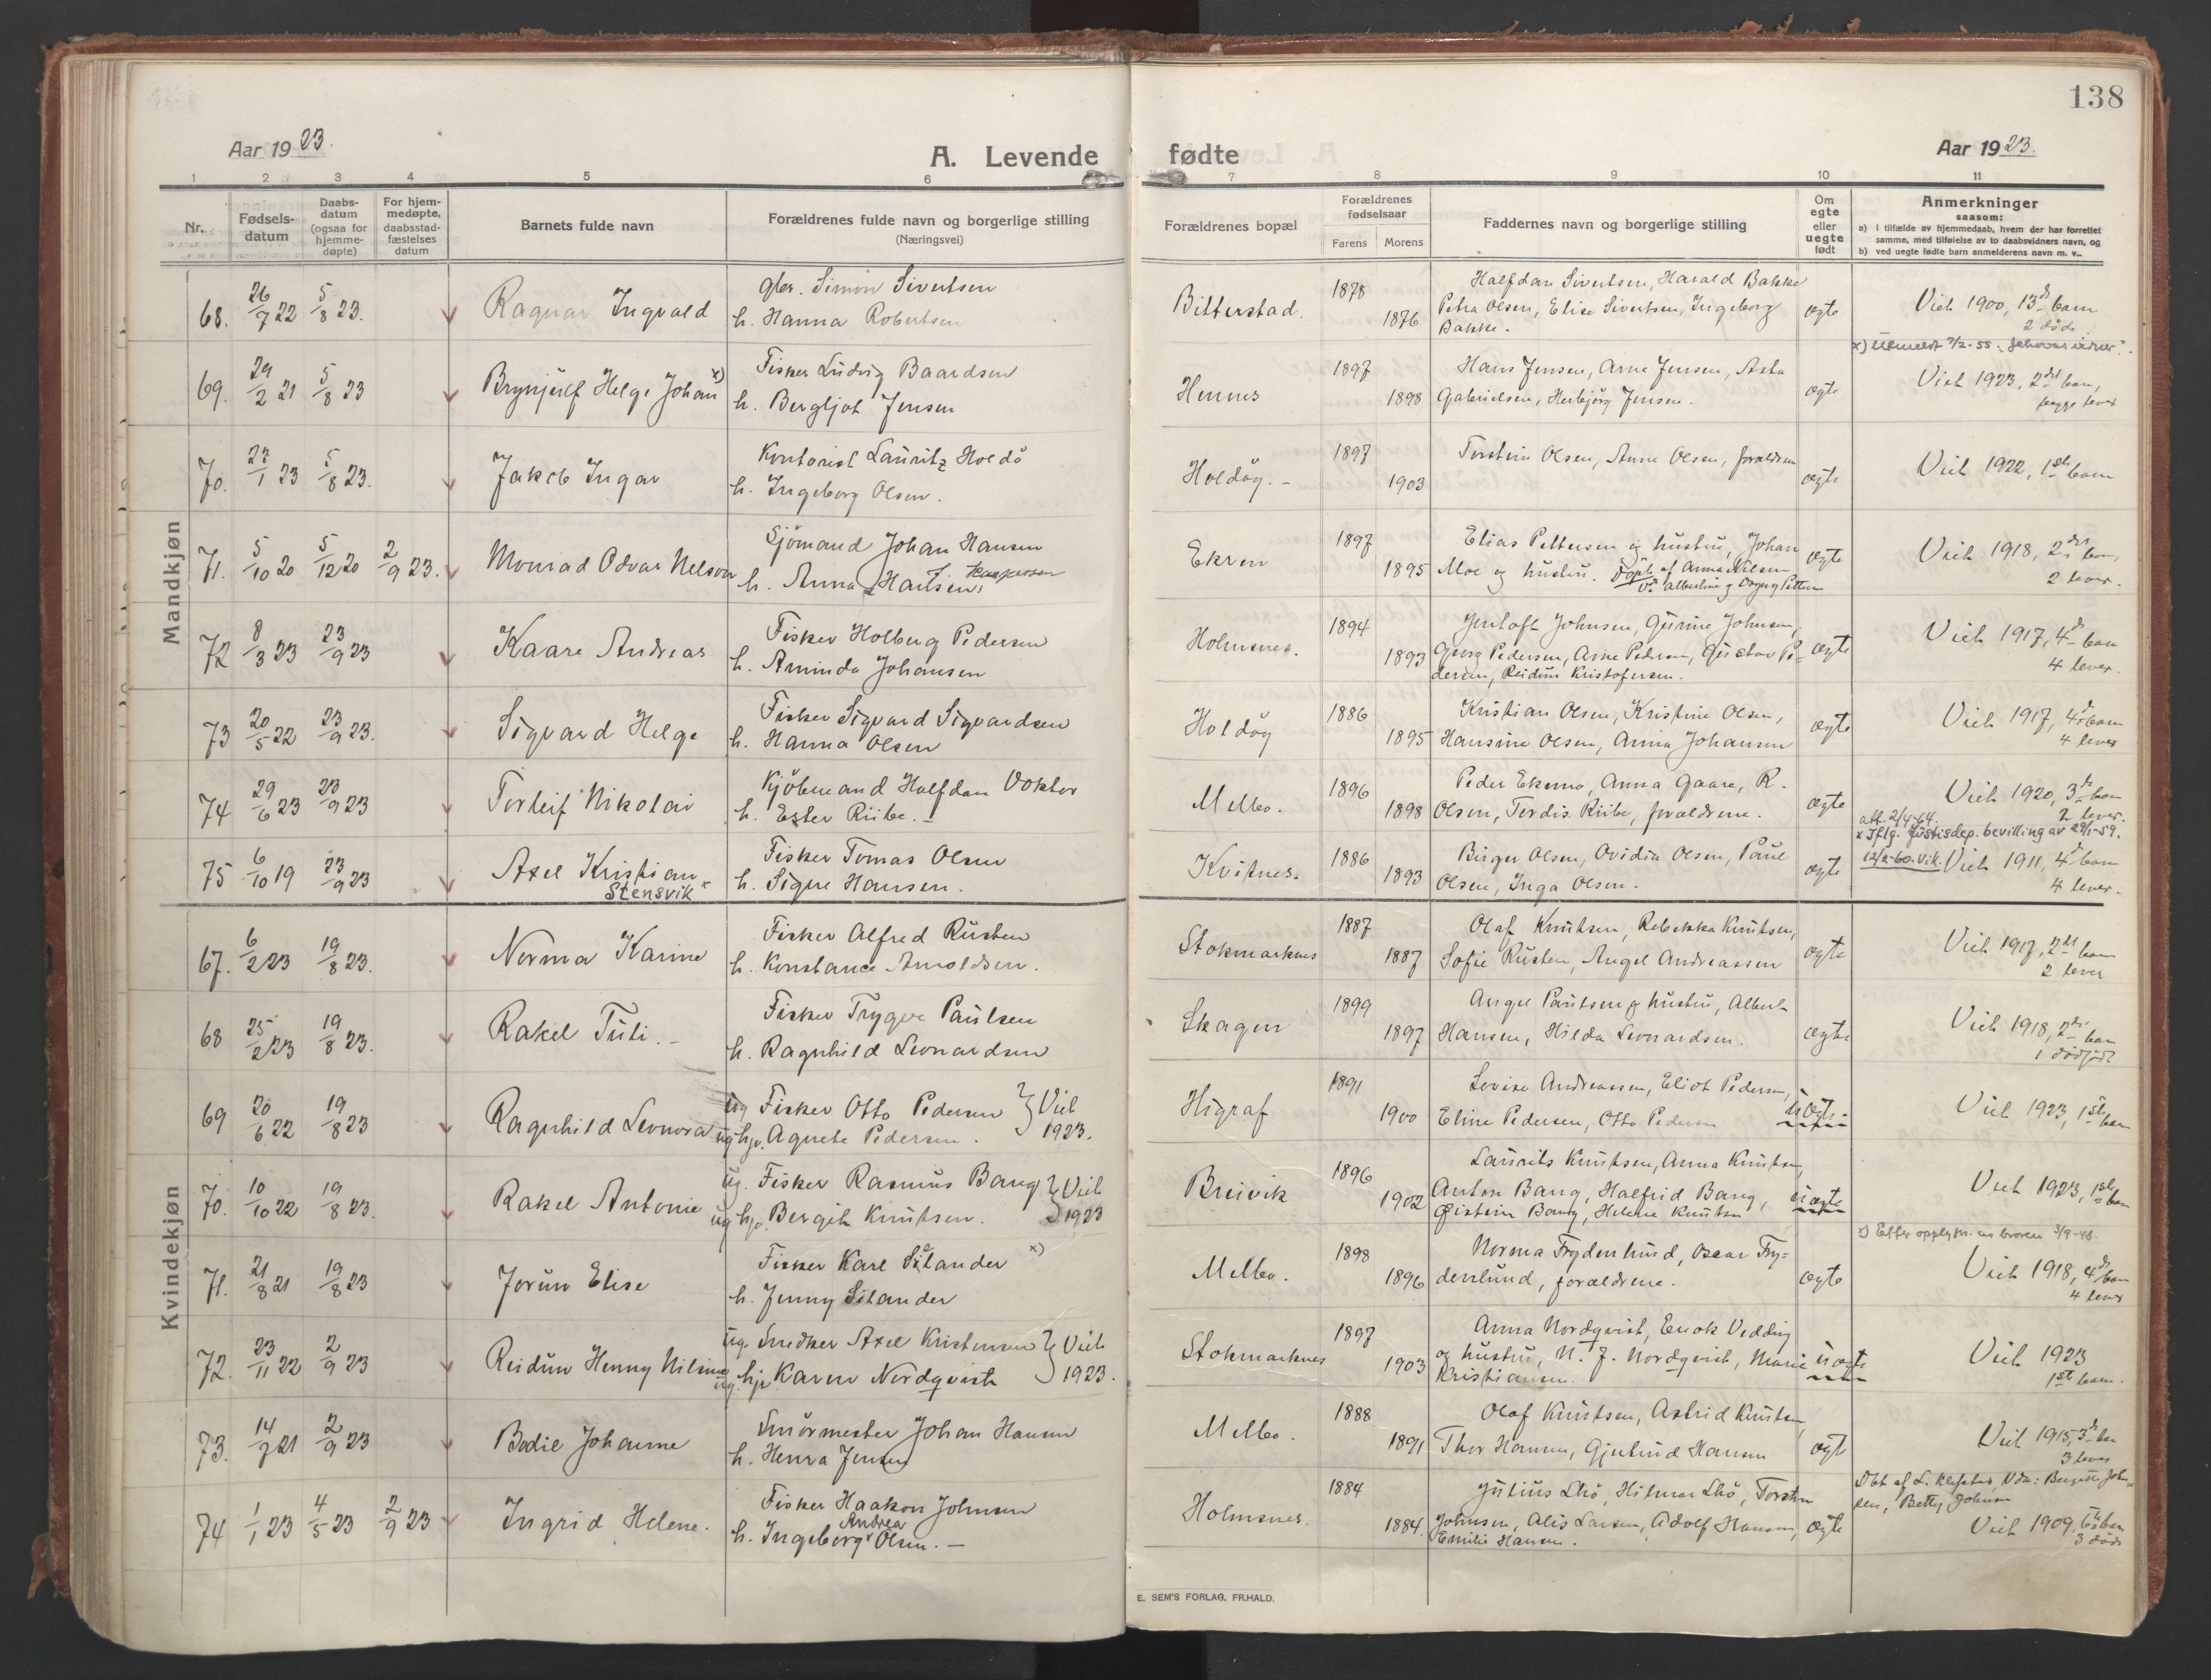 138
Aar 1923.
A. Levende fødte
Aar 1923.
1 2 3 4 5 6 7 8 9 10 11
Nr.
Fødsels-
datum
Daabs-
datum
(ogsaa for
hjemme-
døpte)
For hjem-
medøpte,
daabsstad-
fæstelses
datum
Barnets fulde navn
Forældrenes fulde navn og borgerlige stilling
(Næringsvei)
Forældrenes bopæl
Forældrenes
fødselsaar
Farens Morens
Faddernes navn og borgerlige stilling
Om
egte
eller
uegte
født
Anmerkninger
saasom:
a) i tilfælde av hjemmedaab, hvem der har forrettet
samme, med tilføielse av to daabsvidners navn, og
b) ved uegte fødte barn anmelderens navn m. v..
Mandkjøn
68. 26/7 22 5/8 23. Ragnar Ingvald
gbr. Simon Sivertsen
h. Hanna Robertsen
Bitterstad. 1878 1876
Halfdan Sivertsen, Harald Bakke
Petra Olsen, Elise Sivertsen, Ingeborg
Bakke.
egte
Viet 1900, 13de barn
2 döde
x) Utmeldt 7/2-55. "Jehovas vidner".
69. 29/2 21 5/8 23 Brynjulf Helge Johan x)
Fisker Ludvig Baardsen
h. Bergljot Jensen
Hennes 1897 1898
Hans Jensen, Arne Jensen, Asta
Gabrielsen, Herbjörg Jensen.
egte
Viet 1923, 2det barn,
begge lever
70. 27/1 23 5/8 23. Jakob Ingar
Kontorist Lauritz Holdö
h. Ingeborg Olsen.
Holdöy.- 1897 1903
Torstein Olsen, Anne Olsen, forældrene
egte
Viet 1922, 1ste barn
71. 5/10 20 5/12 20 2/9 23. Monrad Odvar Nelson
Sjömand Johan Hansen
h. Anna Hansen, Kaspersen
Ekren 1897 1895
Elias Pettersen og hustru, Johan
Moe og hustru. Döpt af Anna Nilsen
egte
Viet 1918, 2det barn,
2 lever.
72 8/3 23 23/9 23 Kaare Andreas
Fisker Holberg Pedersen
h. Aminda Johansen
Holmsnes. 1894 1893
Jentoft Johnsen, Gurine Johnsen,
Georg Pedersen, Arne Pedersen, Gustav Pe-
dersen, Reidun Kristofersen.
egte
Viet 1917, 4de barn
4 lever.
73 20/5 22 23/9 23. Sigvard Helge
Fisker Sigvard Sigvardsen
h. Hanna Olsen
Holdöy 1886 1895
Kristian Olsen, Kristine Olsen,
Hansine Olsen, Anna Johansen
egte
Viet 1917, 4de barn
4 lever
74 29/6 23 23/9 23 Torleif Nikolai
Kjöbmand Halfdan Doktor
h. Ester Riibe.-
Melbo. 1896 1898
Peder Ekerno, Anna Gaare, R.
Olsen, Tordis Riibe, forældrene.
egte
Viet 1920, 3de barn
2 lever.
att. 2/4-64.
x Iflg. Justisdep. bevilling av 29/1-59.
75 6/10 19 23/9 23 Axel Kristian x
Stensvik
Fisker Tomas Olsen
h. Signe Hansen.
Kvitnes. 1886 1893
Birger Olsen, Ovidia Olsen, Paul
Olsen, Inga Olsen.
egte
12/2-60. Vik. Viet 1911, 4de barn
4 lever.
Kvindekjøn
67. 6/2 23 19/8 23. Norma Karine
Fisker Alfred Rusten
h. Konstance Arnoldsen.
Stokmarknes 1887 1887
Olaf Knutsen, Rebekka Knutsen,
Sofie Rusten, Angel Andreassen
egte
Viet 1917, 2det barn
2 lever
68 25/2 23 19/8 23. Rakel Tuli.-
Fisker Trygve Paulsen
h. Ragnhild Leonardsen
Skagen 1899 1897
Angel Paulsen og hustru, Albert
Hansen, Hilda Leonardsen.
egte
Viet 1918, 2det barn
1 dödfödt
69 20/6 22 19/8 23 Ragnhild Leonora
ug Fisker Otto Pedersen } Viet
ug hjv. Agnete Pedersen. 1923.
Higraf 1891 1900
Lovise Andreassen, Eliot Pedersen,
Eline Pedersen, Otto Pedersen
uegte
Viet 1923, 1ste barn
70. 10/10 22 19/8 23. Rakel Antonie
ug. Fisker Rasmus Bang } Viet
ug hjv. Bergit Knutsen. 1923
Breivik 1896 1902
Laurits Knutsen, Anna Knutsen,
Anton Bang, Halfrid Bang,
Øistein Bang, Helene Knutsen
uegte
Viet 1923, 1ste barn
x) Efter opplysn. av broren 3/9-48.
71. 21/8 21 19/8 23 Jorun Elise
Fisker Karl Silander x)
h. Jenny Silander
Melbo. 1898 1896
Norma Frydenlund, Oscar Fry-
denlund, forældrene.
egte
Viet 1918, 4de barn
4 lever
72. 23/11 22 2/9 23 Reidun Henny Nilsine
ug. Snedker Axel Kristensen } Viet
ug. hjv Karen Nordqvist 1923.
Stokmarknes 1897 1903
Anna Nordqvist, Enok Vedding
og hustru, N. J. Nordqvist, Marie
Kristiansen.
uegte
Viet 1923
1st barn.
73. 14/7 21 2/9 23 Bodil Johanne
Smörmester Johan Hansen
h. Henra Jensen
Melbo. 1888 1891
Olaf Knutsen, Astrid Knutsen,
Thor Hansen, Gjertrud Hansen
egte
Viet 1915, 3de barn
3 lever
74 1/1 23 4/5 23 2/9 23 Ingrid Helene.
Fisker Haakon Johnsen
h. Ingeborg Andrea Olsen.-
Holmsnes. 1884 1884.
Julius Lhö, Hilmar Lhö, Torsten
Johnsen, Alis Larsen, Adolf Hansen,
Emilie Hansen.
egte
Betty Johnsen
Viet 1909, 6te barn
3 döde
E. SEM'S FORLAG, FR.HALD.